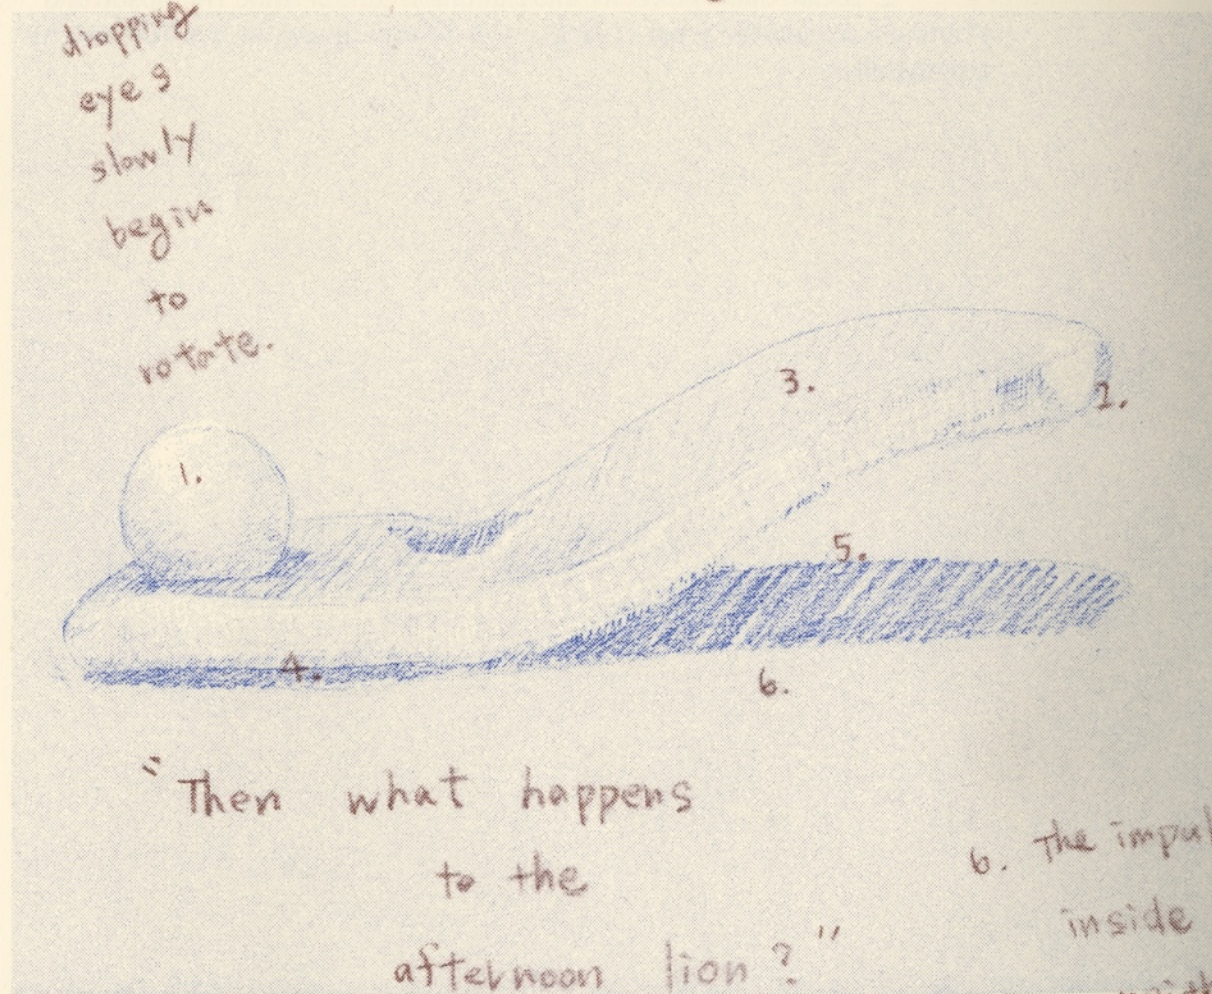 dropping
eyes
slowly
begin
to
rotate.
1.
3.
2.
5.
4.
6.
"Then what happens
to the
afternoon lion?"
6. The
inside